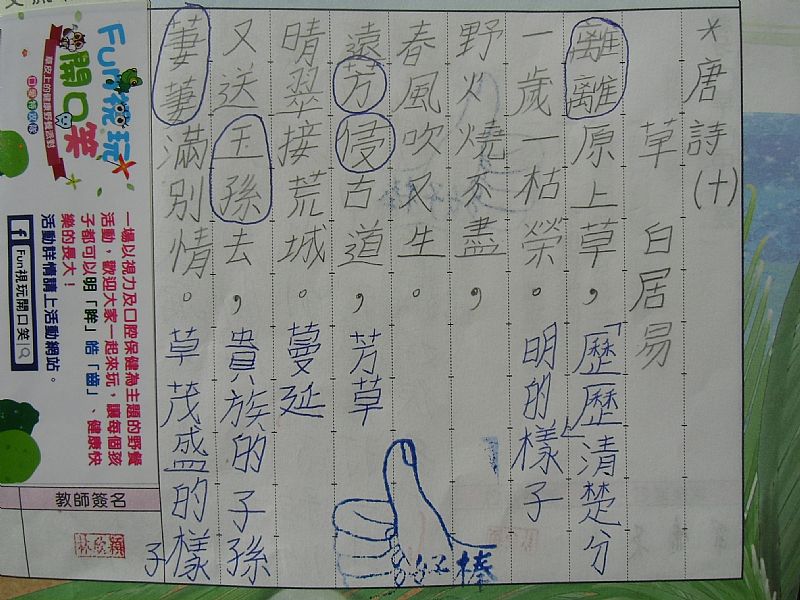 *唐詩(十)
草 白居易
離離原上草，「歷歷清楚分
一歲一枯榮。明的樣子」
野火燒不盡，
春風吹又生。
遠芳侵古道，芳草
晴翠接荒城。蔓延
又送王孫去，貴族的子孫
萋萋滿別情。草茂盛的樣子
教師簽名
一場以視力及口腔保健為主題的野餐
活動，歡迎大家一起來玩，讓每個孩
子都可以明「眸」皓「齒」、健康快
樂的長大！
活動詳情請上活動網站。
f Fun視玩開口笑
Fun視玩
開口笑
草皮上的健康野餐派對
棒